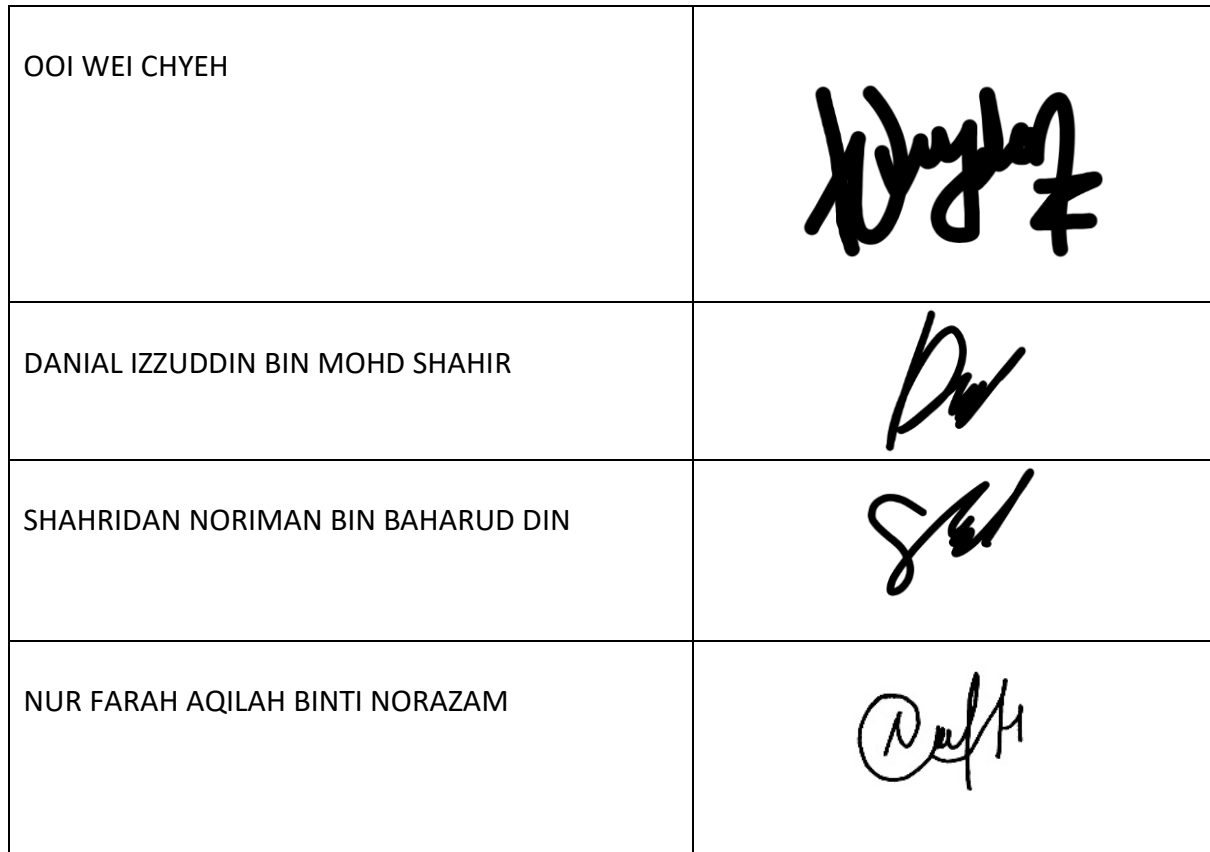 OOI WEI CHYEH
DANIAL IZZUDDIN BIN MOHD SHAHIR
SHAHRIDAN NORIMAN BIN BAHARUD DIN
NUR FARAH AQILAH BINTI NORAZAM